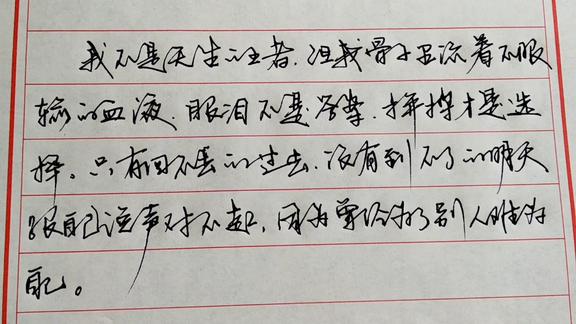 我不是天生的王者,但我骨子里流着不服
输的血液.眼泪不是答案.拼搏才是选
择。只有回不去的过去.没有到不了的明天
跟自己说声对不起,因为曾经为了别人难为
自己。